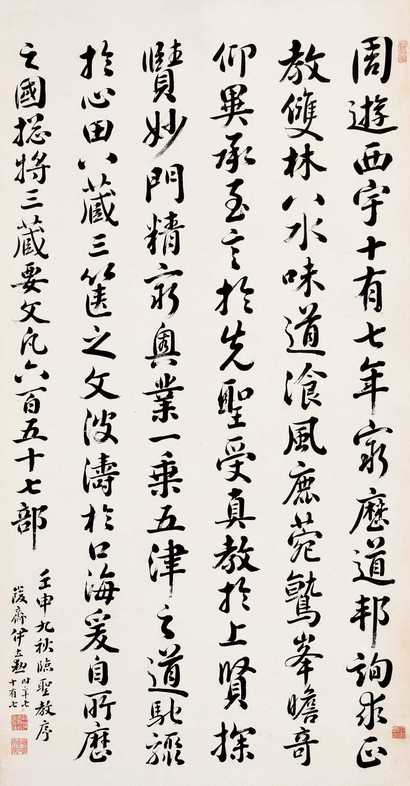 周遊西宇十有七年窮歷道邦詢求正
教雙林八水味道飡風鹿菀鷲峯瞻奇
仰異承至言於先聖受真教於上賢探
賾妙門精窮奧業一乘五律之道馳驟
於心田八藏三篋之文波濤於口海爰自所歷
之國摠將三藏要文凡六百五十七部
壬申九秋臨聖教序
葰齋伊立勳時年七
十有七